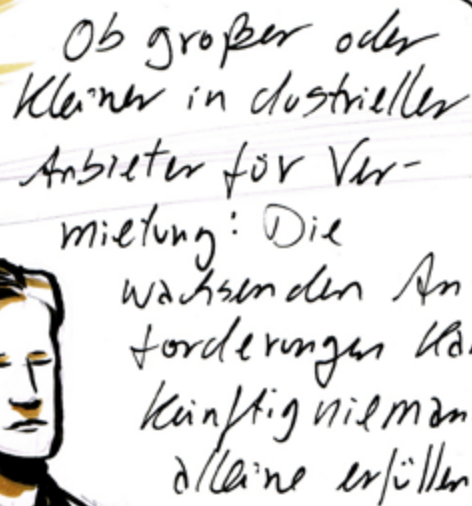 Ob großer oder
kleiner industrieller
Anbieter für Ver-
mietung: Die
wachsenden An
forderungen ka
künftig nieman
alleine erfüllen